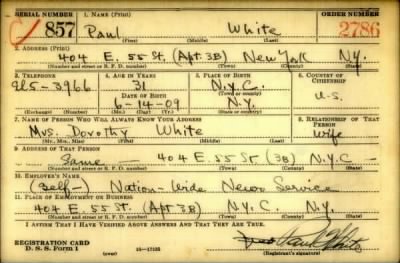 SERIAL NUMBER 1. NAME (Print) ORDER NUMBER
857 Paul White 2786
(First) (Middle) (Last)
2. ADDRESS (Print)
404 E. 55 St. (Apt. 3B) New York N.Y.
(Number and street or R. F. D. number) (Town) (County) (State)
3. TELEPHONE 4. AGE IN YEARS 5. PLACE OF BIRTH 6. COUNTRY OF CITIZENSHIP
31 N.Y.C.
DATE OF BIRTH (Town or county)
6-14-09 N.Y. U.S.
(Exchange) (Number) (Mo.) (Day) (Yr.) (State or country)
7. NAME OF PERSON WHO WILL ALWAYS KNOW YOUR ADDRESS 8. RELATIONSHIP OF THAT PERSON
Mrs. Dorothy White wife
(Mr., Mrs., Miss) (First) (Middle) (Last)
9. ADDRESS OF THAT PERSON
Same — 404 E. 55 St. (3B) N.Y.C —
(Number and street or R. F. D. number) (Town) (County) (State)
10. EMPLOYER'S NAME
(Self-) Nation-Wide News Service
11. PLACE OF EMPLOYMENT OR BUSINESS
404 E. 55 St. (Apt 3B) N.Y.C. N.Y.
(Number and street or R. F. D. number) (Town) (County) (State)
I AFFIRM THAT I HAVE VERIFIED ABOVE ANSWERS AND THAT THEY ARE TRUE.
REGISTRATION CARD
D. S. S. Form 1 (over) 16-17105 Paul White
(Registrant's signature)